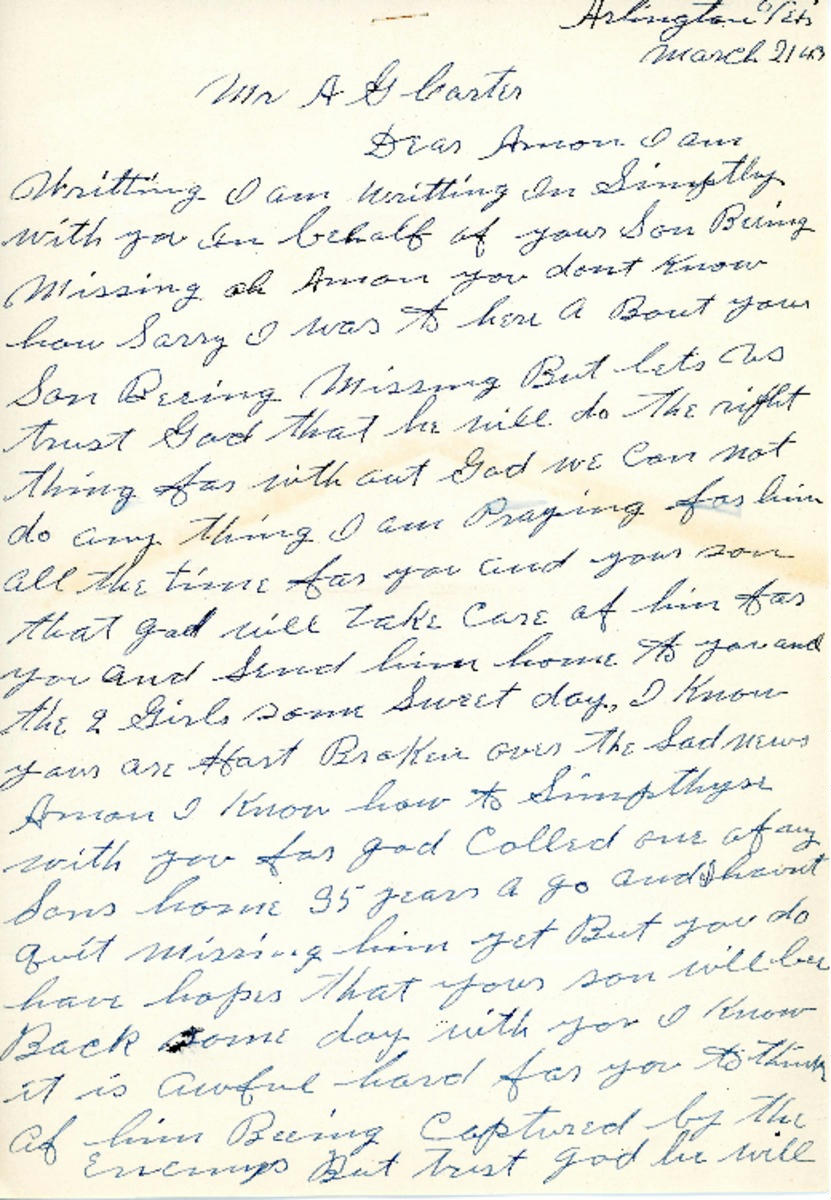 Arlington Tex
March 21 43
Mr A G Carter
Dear Amon I am
Writting I am writting In Simptly
with you In behalf of your Son Being
Missing oh Amon you dont Know
how Sorry I was to here A Bout your
Son Beeing Missing But lets us
trust God that he will do the right
thing for with out God we can not
do any thing I am Praying for him
all the time for you and your son
that god will take care of him for
you and Send him home to you and
the 2 Girls some Sweet day, I Know
yous are Hart Broken over the Sad news
Amon I Know how to Simpthyse
with you for god Colled one of my
Sons home 35 years A go and I havint
quit missing him yet But you do
have hopes that your son will bee
Back some day with you I Know
it is awful hard for you to think
of him Beeing Captured by the
Enemys But trust god he will